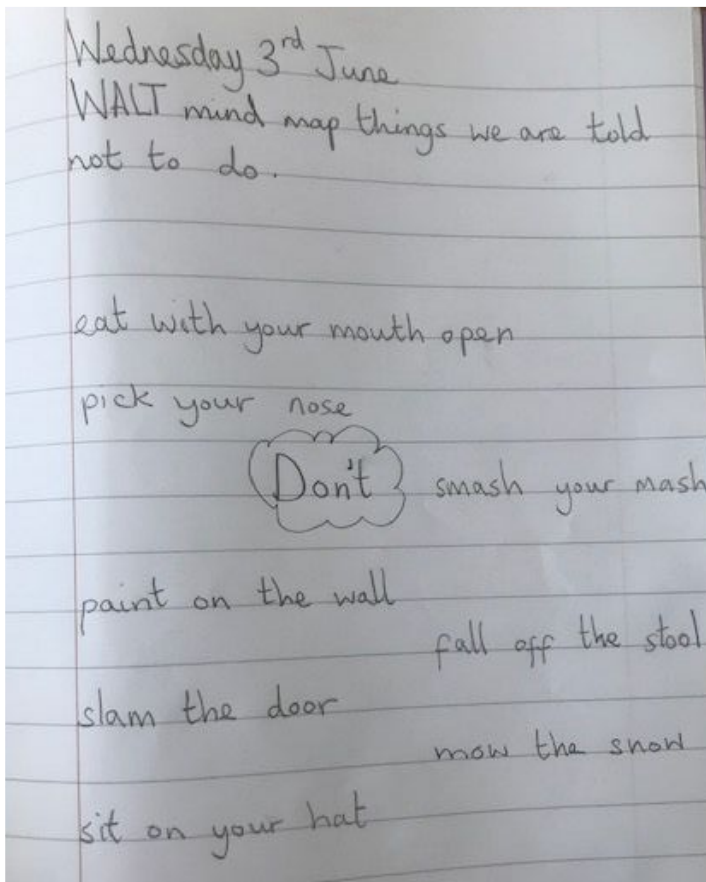 Wednesday 3rd June
WALT mind map things we are told
not to do.
eat with your mouth open
pick your nose
Don't smash your mash
paint on the wall
fall off the stool
slam the door
mow the snow
sit on your hat